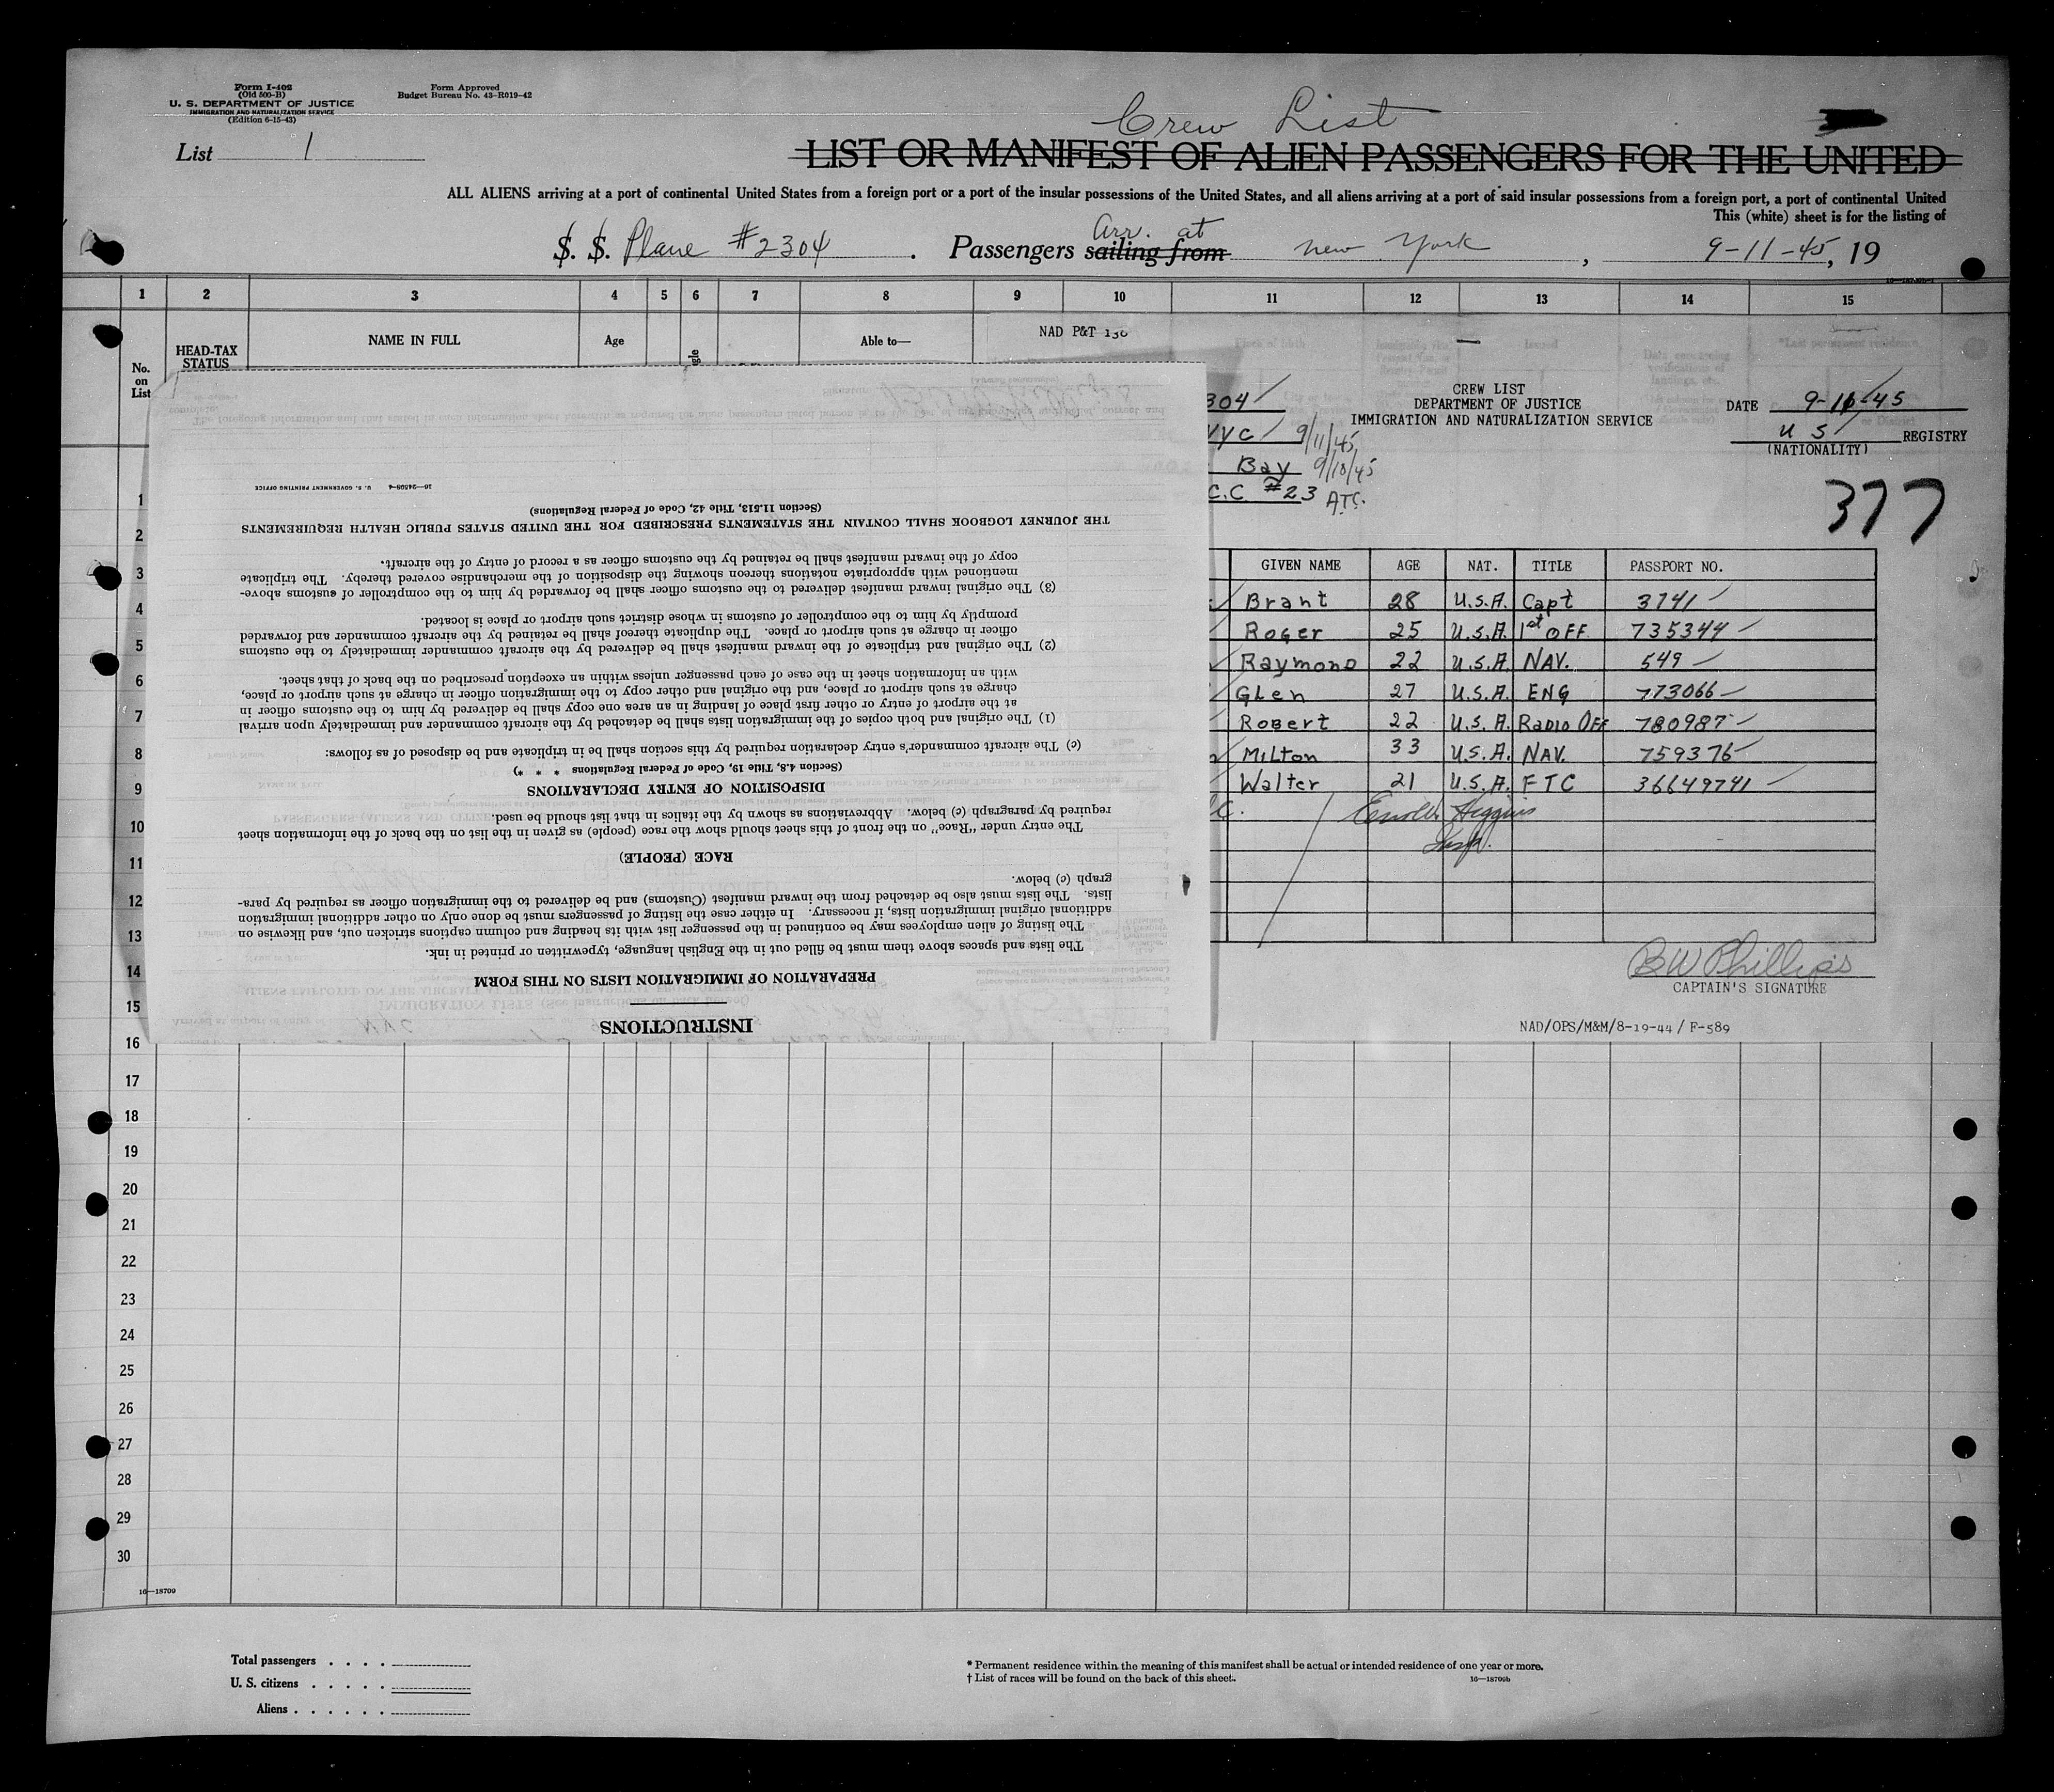 Form I-402
(Old 500-B)
U. S. DEPARTMENT OF JUSTICE
IMMIGRATION AND NATURALIZATION SERVICE
(Edition 6-15-43)
Form Approved
Budget Bureau No. 43-R019-42
List 1
Crew List
LIST OR MANIFEST OF ALIEN PASSENGERS FOR THE UNITED
ALL ALIENS arriving at a port of continental United States from a foreign port or a port of the insular possessions of the United States, and all aliens arriving at a port of said insular possessions from a foreign port, a port of continental United
This (white) sheet is for the listing of
Arr. at
S. S. Plane #2304 . Passengers sailing from New York , 9-11-45, 19
1 2 3 4 5 6 7 8 9 10 11 12 13 14 15
No. on List
HEAD-TAX STATUS
NAME IN FULL
Age
Able to—
NAD P&T 130
304
NYC 9/11/45
Bay 9/10/45
C.C #23 ATC.
CREW LIST
DEPARTMENT OF JUSTICE
IMMIGRATION AND NATURALIZATION SERVICE
DATE 9-11-45
U S REGISTRY
(NATIONALITY)
377
GIVEN NAME AGE NAT. TITLE PASSPORT NO.
Brant 28 U.S.A. Capt 3741
Roger 25 U.S.A 1st OFF. 735344
Raymond 22 U.S.A. NAV. 549
Glen 27 U.S.A. ENG 773066
Robert 22 U.S.A. Radio Off 780987
Milton 33 U.S.A. NAV. 759376
Walter 21 U.S.A. FTC 36649741
Higgins
Insp.
BW Phillips
CAPTAIN'S SIGNATURE
NAD/OPS/M&M/8-19-44/ F-589
INSTRUCTIONS
PREPARATION OF IMMIGRATION LISTS ON THIS FORM
The lists and spaces above them must be filled out in the English language, typewritten or printed in ink.
The listing of alien employees may be continued in the passenger list with its heading and column captions stricken out, and likewise on
additional original immigration lists, if necessary. In either case the listing of passengers must be done only on other additional immigration
lists. The lists must also be detached from the inward manifest (Customs) and be delivered to the immigration officer as required by para-
graph (c) below.
RACE (PEOPLE)
The entry under "Race" on the front of this sheet should show the race (people) as given in the list on the back of the information sheet
required by paragraph (c) below. Abbreviations as shown by the italics in that list should be used.
DISPOSITION OF ENTRY DECLARATIONS
(Section 4.8, Title 19, Code of Federal Regulations * * *)
(c) The aircraft commander's entry declaration required by this section shall be in triplicate and be disposed of as follows:
(1) The original and both copies of the immigration lists shall be detached by the aircraft commander and immediately upon arrival
at the airport of entry or other first place of landing in an area one copy shall be delivered by him to the customs officer in
charge at such airport or place, and the original and other copy to the immigration officer in charge at such airport or place,
with an information sheet in the case of each passenger unless within an exception prescribed on the back of that sheet.
(2) The original and triplicate of the inward manifest shall be delivered by the aircraft commander immediately to the customs
officer in charge at such airport or place. The duplicate thereof shall be retained by the aircraft commander and forwarded
promptly by him to the comptroller of customs in whose district such airport or place is located.
(3) The original inward manifest delivered to the customs officer shall be forwarded by him to the comptroller of customs above-
mentioned with appropriate notations thereon showing the disposition of the merchandise covered thereby. The triplicate
copy of the inward manifest shall be retained by the customs officer as a record of entry of the aircraft.
THE JOURNEY LOGBOOK SHALL CONTAIN THE STATEMENTS PRESCRIBED FOR THE UNITED STATES PUBLIC HEALTH REQUIREMENTS
(Section 11.513, Title 42, Code of Federal Regulations)
U. S. GOVERNMENT PRINTING OFFICE 16—24598-4
1
2
3
4
5
6
7
8
9
10
11
12
13
14
15
16
17
18
19
20
21
22
23
24
25
26
27
28
29
30
16—18709
Total passengers . . . .
U. S. citizens . . . . .
Aliens . . . . . .
* Permanent residence within the meaning of this manifest shall be actual or intended residence of one year or more.
† List of races will be found on the back of this sheet.
16—18709b